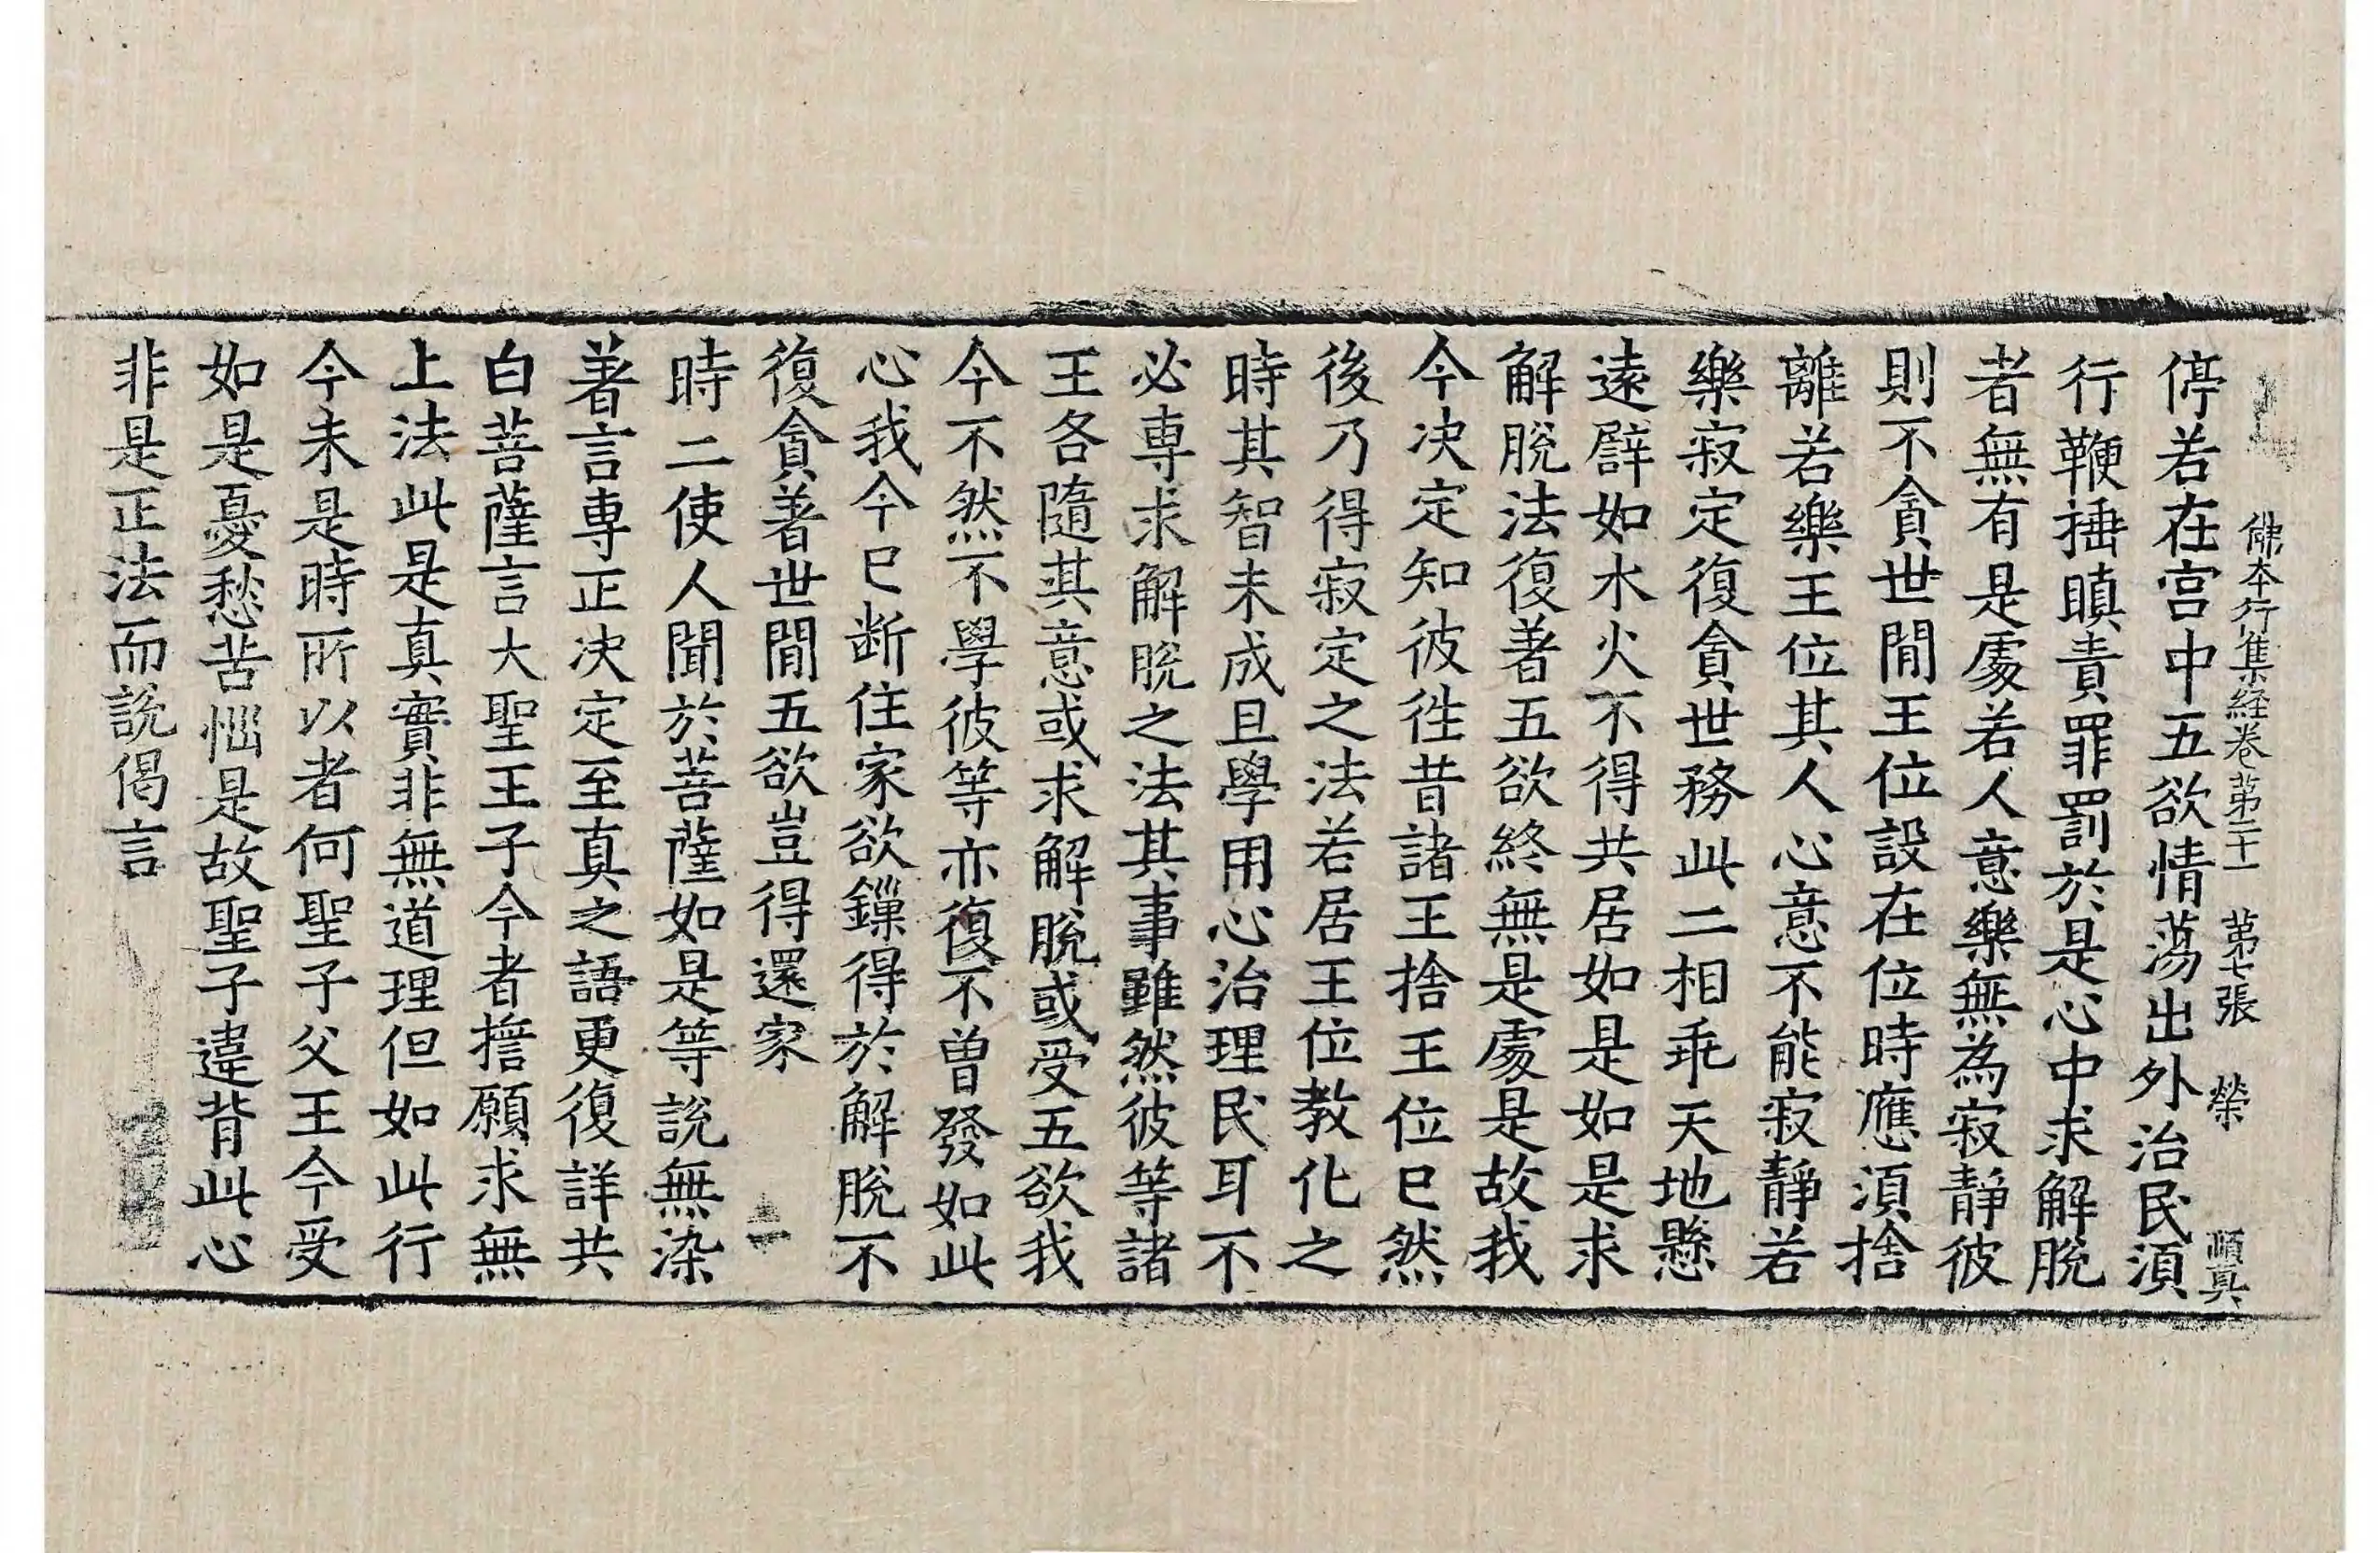 佛本行集経卷苐二十一 苐七張 榮 順真
停若在宫中五欲情蕩出外治民湏
行鞭捶瞋責罪罰於是心中求解脫
者無有是處若人意樂無為寂靜彼
則不貪世間王位設在位時應湏捨
離若樂王位其人心意不能寂靜若
樂寂定復貪世務此二相乖天地懸
遠譬如水火不得共居如是如是求
解脫法復著五欲終無是處是故我
今决定知彼徃昔諸王捨王位已然
後乃得寂定之法若居王位教化之
時其智未成且學用心治理民耳不
必專求解脫之法其事雖然彼等諸
王各隨其意或求解脫或受五欲我
今不然不學彼等亦復不曾發如此
心我今已断住家欲鏁得於解脫不
復貪著世間五欲豈得還家
時二使人聞於菩薩如是等說無染
著言專正决定至真之語更復詳共
白菩薩言大聖王子今者擔願求無
上法此是真實非無道理但如此行
今未是時所以者何聖子父王今受
如是憂愁苦惱是故聖子違背此心
非是正法而說偈言